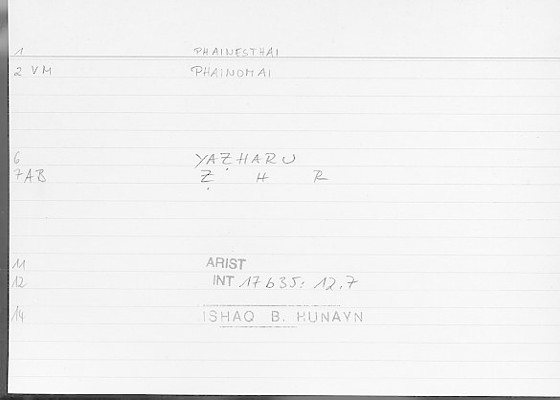 1 PHAINESTHAI
2 VM PHAINOMAI
6 YAẒHARU
7AB Ẓ H R
11 ARIST
12 INT 17b35; 12,7
14 ISHAQ B. HUNAYN